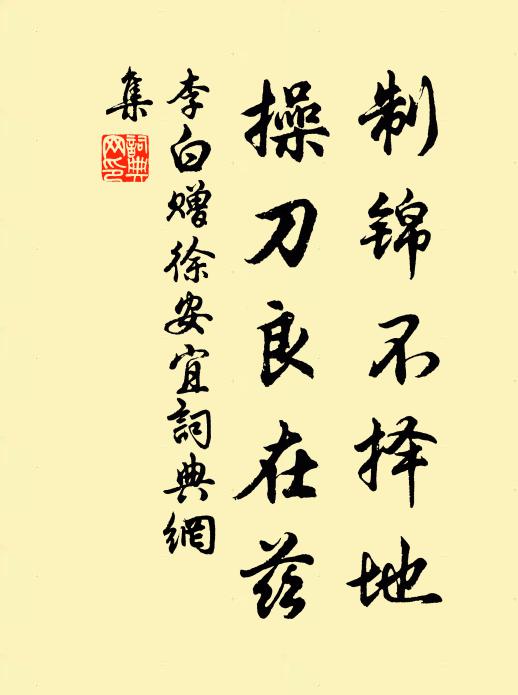 制锦不择地
操刀良在兹
李白赠徐安宜詞典網
集
詞典網印